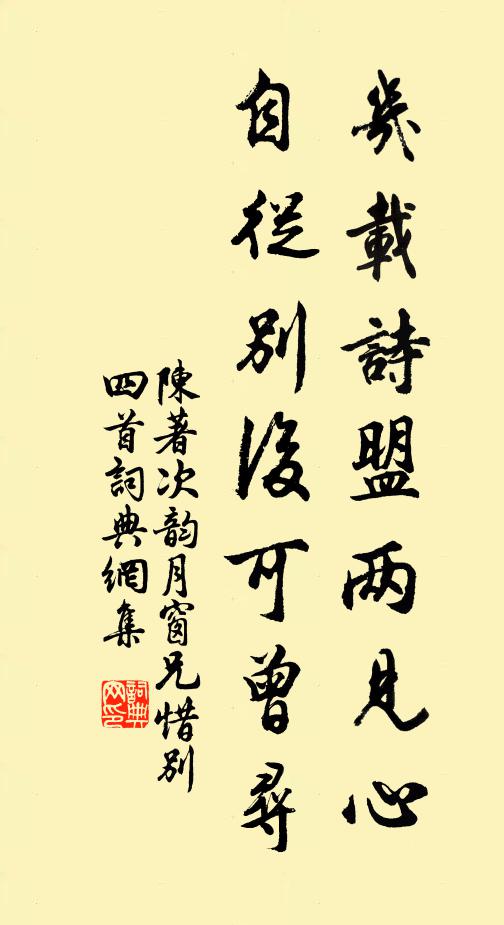 幾載詩盟两見心
自從別後可曾尋
陳著次韵月窗兄惜別
四首詞典網集
詞典
网印